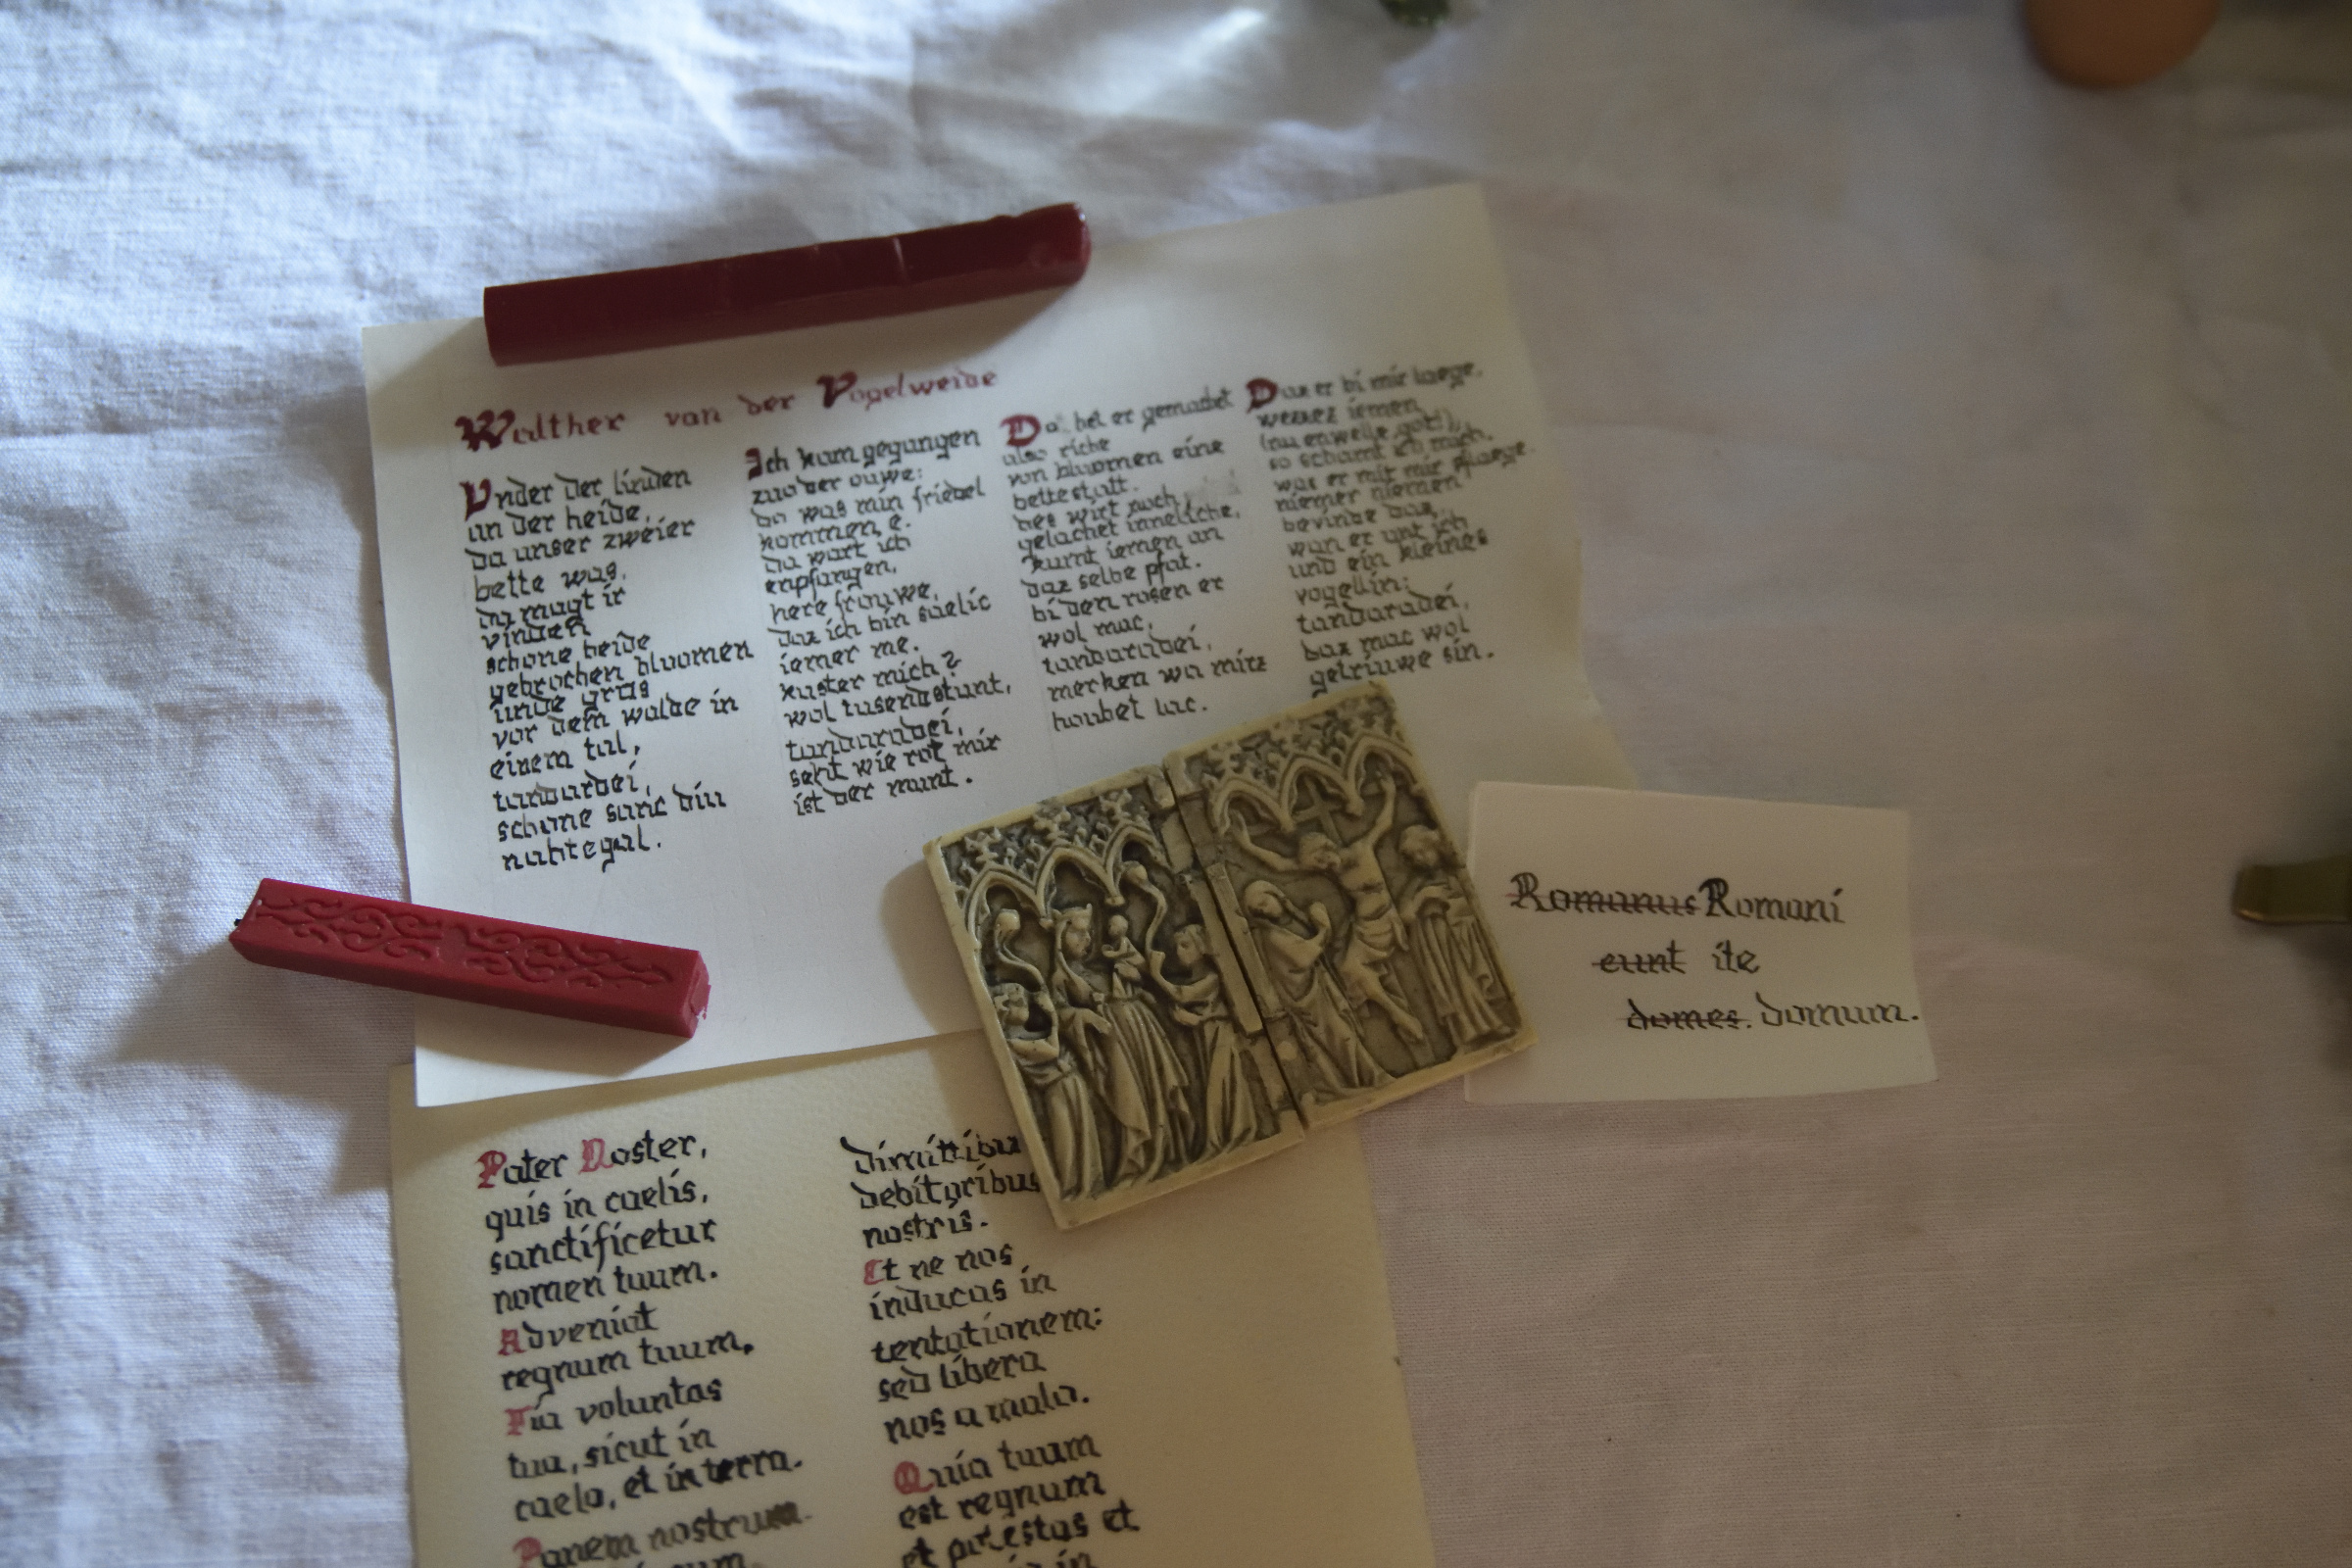 Walther von der Vogelweide
Vnder der linden
an der heide,
da unser zweier
bette was,
da mugt ir
vinden
schone beide
gebrochen bluomen
unde gras
vor dem walde in
einem tal,
tandardei,
schone sanc diu
nahtegal.
Ich kam gegangen
zuo der ouwe:
do was min friedel
kommen e.
da wart ich
enpfangen,
here frouwe,
daz ich bin saelic
iemer me.
kuster mich?
wol tusendstunt,
tandaradei,
seht wie rot mir
ist der munt.
Do het er gemachet
also riche
von bluomen eine
bettestatt.
des wirt noch
gelachet innecliche,
kumt iemen an
daz selbe pfat.
bi den rosen er
wol mac,
tandaradei,
merken wa mirz
houbet lac.
Daz er bi mir laege,
wessez iemen
(nu enwelle got!),
so schamt ich mich.
wes er mit mir pflaege
niemer niemen
bevinde daz,
wan er unt ich
und ein kleines
vogellin:
tandaradei,
daz mac wol
getriuwe sin.
Romanus Romani
eunt ite
domes. domum.
Pater Noster,
quis in caelis,
sanctificetur
nomen tuum.
Adveniat
regnum tuum.
Fia voluntas
tua, sicut in
caelo, et in terra.
Panem nostrum
dimittibu
debitoribus
nostris.
Et ne nos
inducas in
tentationem:
sed libera
nos a malo.
Quia tuum
est regnum
et potestas et
in